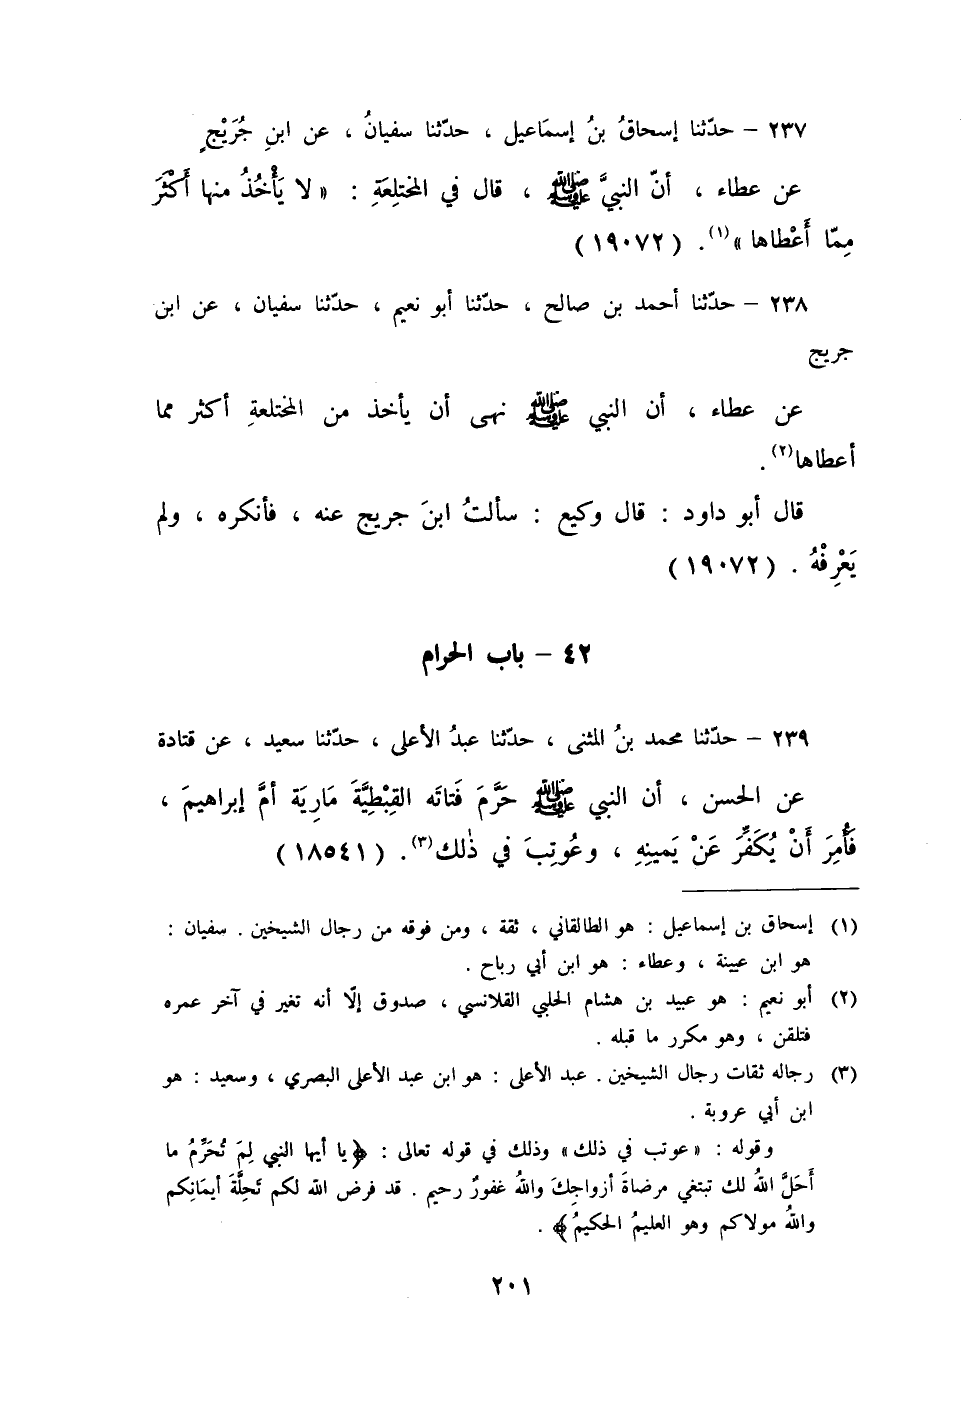 ٢٣٧ – حدّثنا إسحاقُ بنُ إسمَاعيل ، حدّثنا سفيانُ ، عن ابنِ جُرَيْجٍ
عن عطاء ، أنّ النبيَّ ﷺ ، قال في المختلِعَةِ : « لا يَأْخُذُ منها أَكْثَرَ
مِمّا أَعْطاها »(١). (١٩٠٧٢)
٢٣٨ – حدّثنا أحمد بن صالح ، حدّثنا أبو نعيم ، حدّثنا سفيان ، عن ابن
جريج
عن عطاء ، أن النبي ﷺ نهى أن يأخذ من المختلعةِ أكثر مما
أعطاها(٢).
قال أبو داود : قال وكيع : سألتُ ابنَ جريج عنه ، فأنكره ، ولم
يَعْرِفْهُ . (١٩٠٧٢)
٤٢ – باب الحرام
٢٣٩ – حدّثنا محمد بنُ المثنى ، حدّثنا عبدُ الأعلى ، حدّثنا سعيد ، عن قتادة
عن الحسن ، أن النبي ﷺ حَرَّمَ فَتاتَه القِبْطِيَّةَ مَارِيَة أمَّ إبراهيمَ ،
فَأُمِرَ أَنْ يُكَفِّرَ عَنْ يَمينِهِ ، وعُوتِبَ في ذٰلك(٣). (١٨٥٤١)
(١) إسحاق بن إسماعيل : هو الطالقاني ، ثقة ، ومن فوقه من رجال الشيخين . سفيان :
هو ابن عيينة ، وعطاء : هو ابن أبي رباح .
(٢) أبو نعيم : هو عبيد بن هشام الحلبي القلانسي ، صدوق إلّا أنه تغير في آخر عمره
فتلقن ، وهو مكرر ما قبله .
(٣) رجاله ثقات رجال الشيخين . عبد الأعلى : هو ابن عبد الأعلى البصري ، وسعيد : هو
ابن أبي عروبة .
وقوله : « عوتب في ذلك » وذلك في قوله تعالى : ﴿يا أيها النبي لِمَ تُحَرِّمُ ما
أَحَلَّ اللهُ لك تبتغي مرضاةَ أزواجِكَ واللهُ غفورٌ رحيم . قد فرض الله لكم تَحِلَّةَ أيمَانِكم
واللهُ مولاكم وهو العليمُ الحكيمُ﴾ .
٢٠١